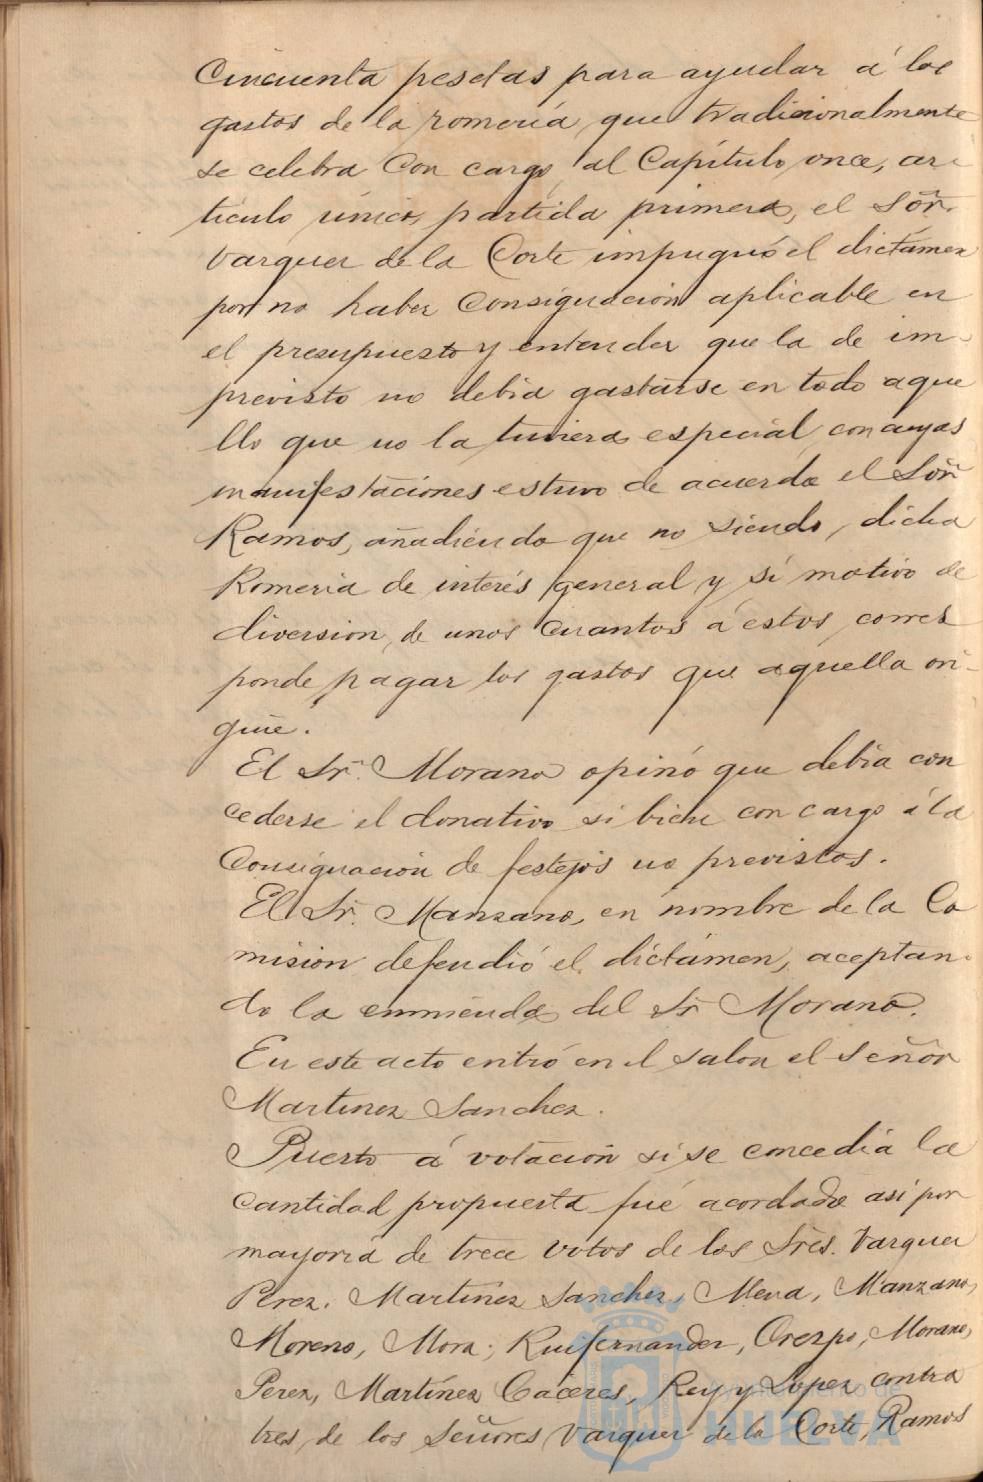 Cincuenta pesetas para ayudar á los
gastos de la romería que tradicionalmente
se celebra con cargo al Capítulo once, ar-
tículo único, partida primera, el Sõr.
Vazquez de la Corte impugnó el dictámen
por no haber Consignación aplicable en
el presupuesto y entender que la de im-
previsto no debia gastarse en todo aque
llo que no la tuviera especial, con cuyas
manifestaciones estuvo de acuerdo el Sõr
Ramos, añadiendo que no siendo, dicha
Romeria de interés general y sí motivo de
diversion de unos cuantos á estos, corres
ponde pagar los gastos que aquella ori-
gine.
El Sr. Morano opinó que debia con
cederse el donativo si bien con cargo á la
Consignación de festejos no previstos.
El Sr. Manzano, en nombre de la Co
mision defendió el dictámen, aceptan-
do la enmienda del Sr Morano.
En este acto entró en el salon el Señor
Martinez Sanchez.
Puesto á votación si se concedia la
cantidad propuesta fué acordado así por
mayoría de trece votos de los Sres. Vazquez
Perez, Martínez Sanchez, Mena, Manzano,
Moreno, Mora, Ruifernandez, Orezpo, Morano,
Perez, Martínez Cáceres, Rey y Lopez contra
tres, de los Señores Vazquez de la Corte, Ramos
Ayuntamiento de
HUELVA